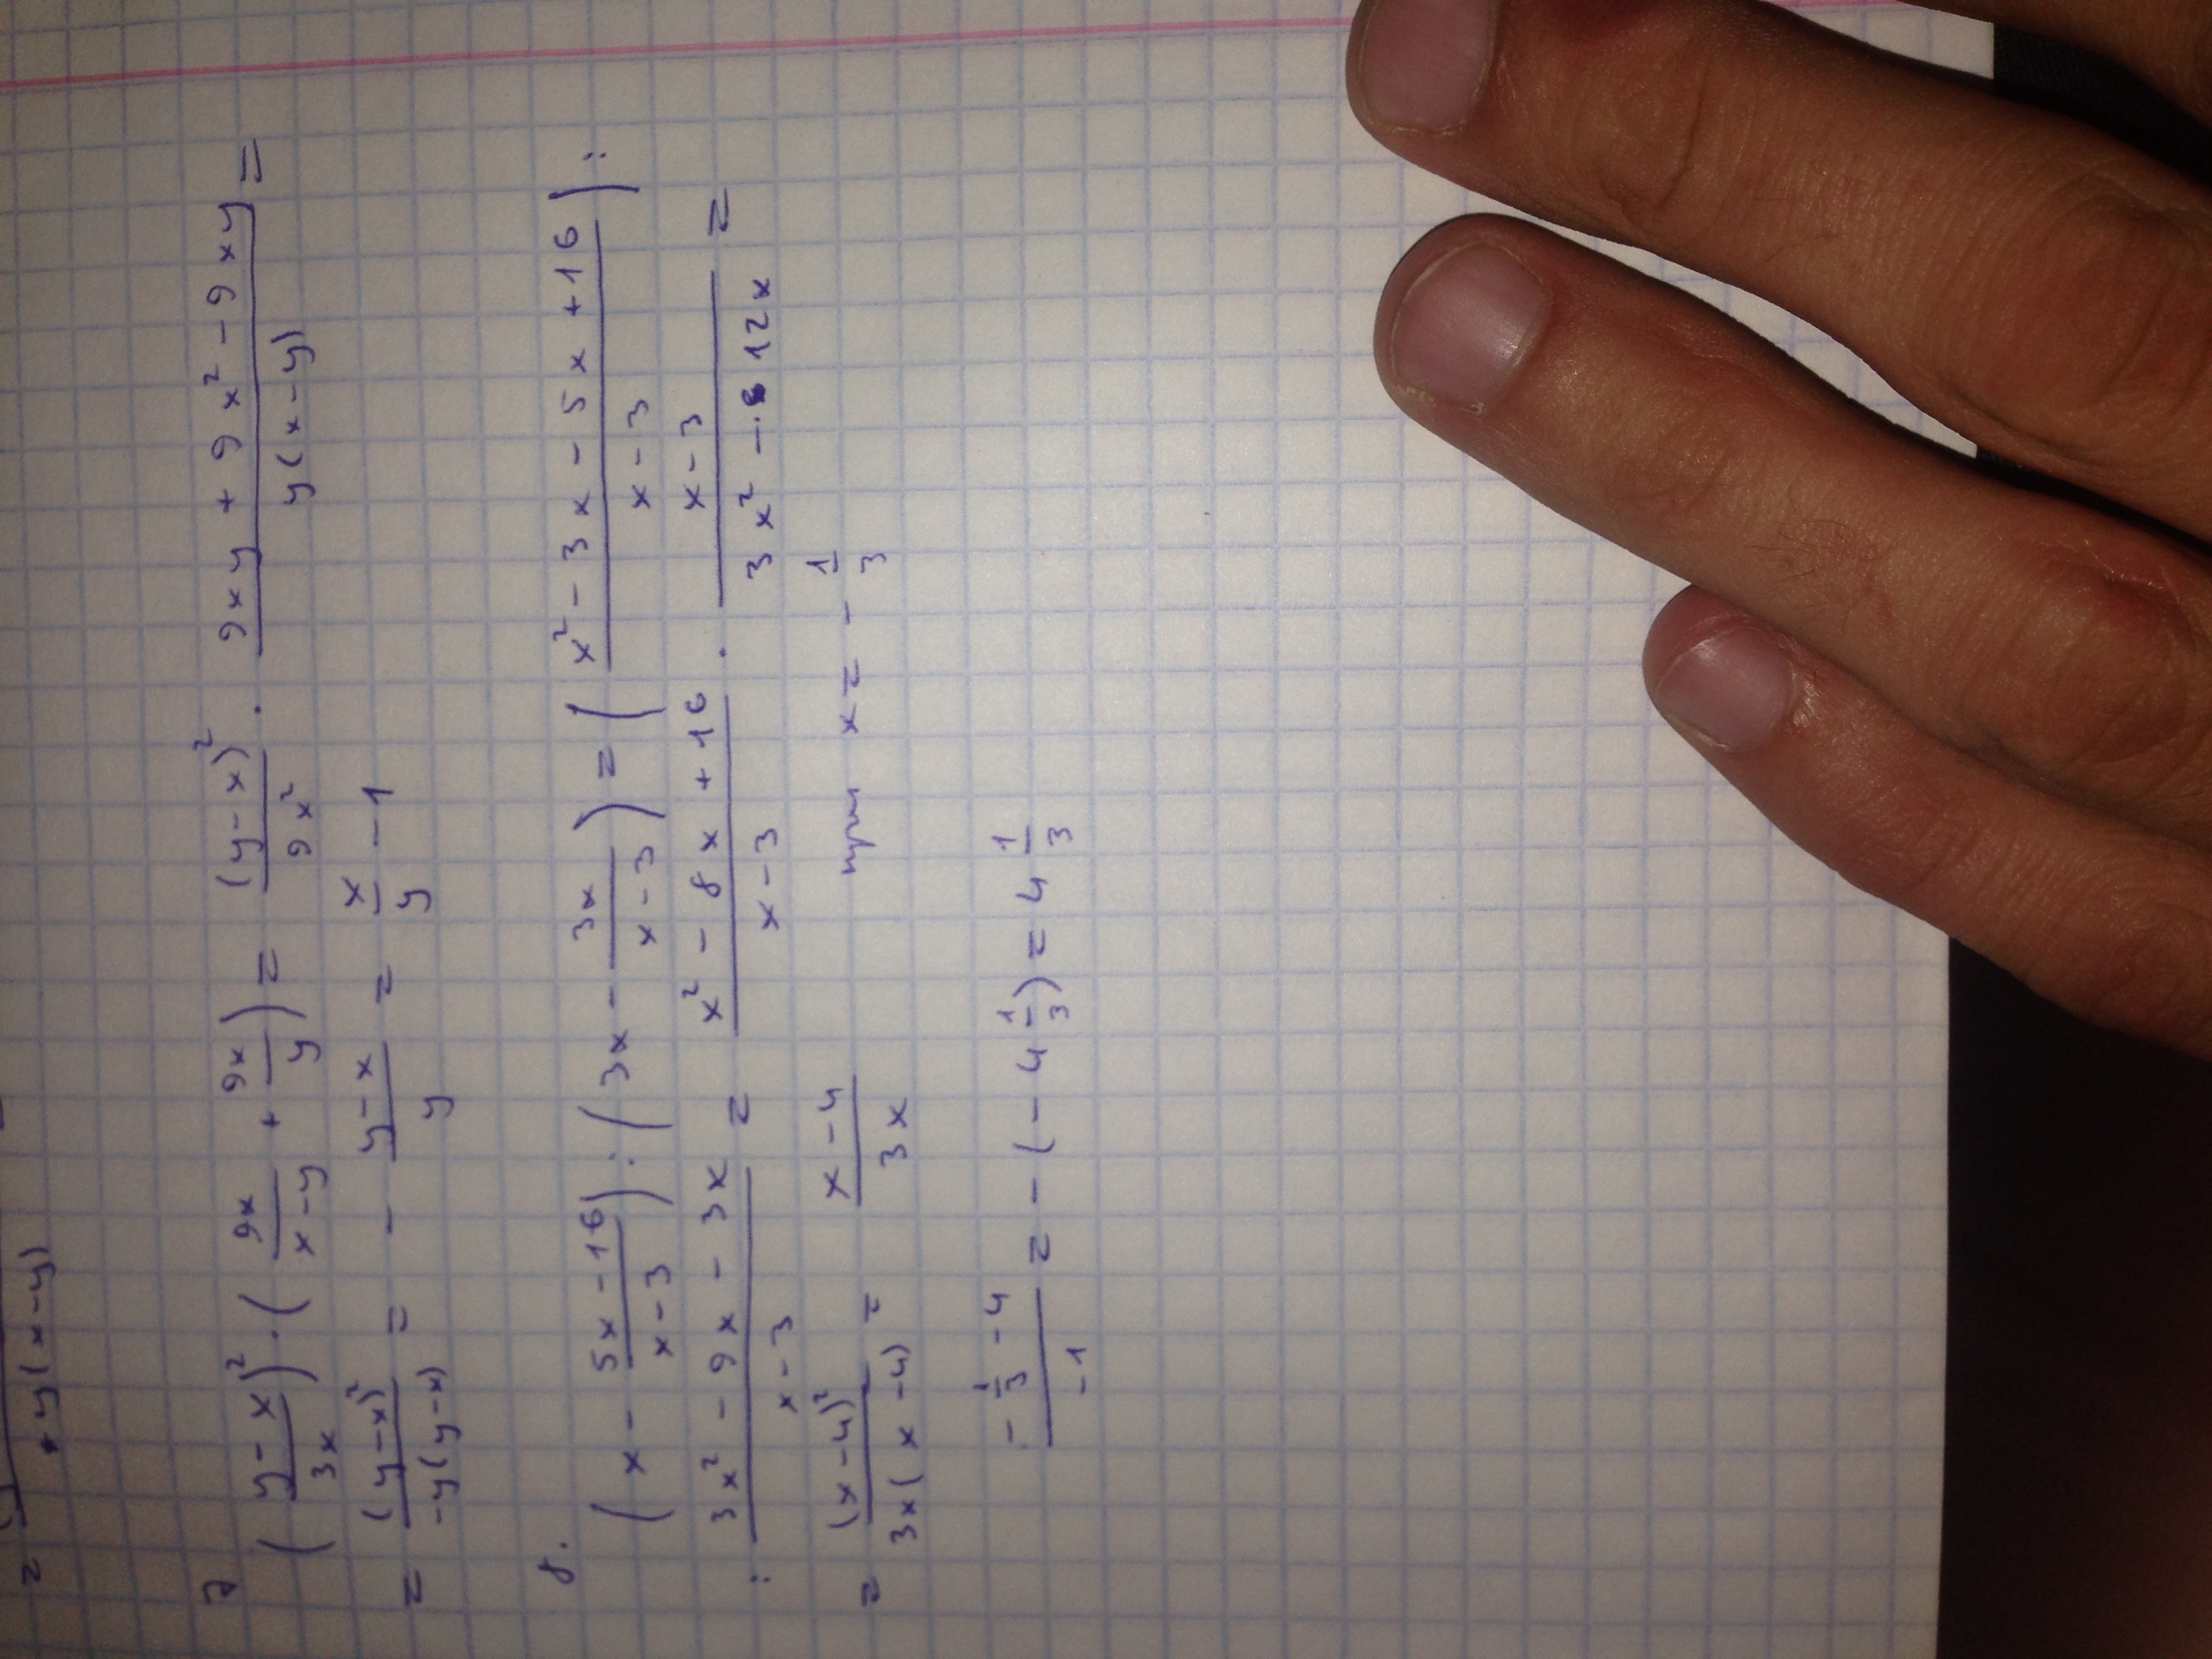 = y(x-y)
д
((y-x)/(3x))² · (9x/(x-y) + 9x/y) = (y-x)²/(9x²) · (9xy + 9x² - 9xy)/(y(x-y)) =
= (y-x)²/(-y(y-x)) = - (y-x)/y = x/y - 1
8.
(x - (5x-16)/(x-3)) : (3x - 3x/(x-3)) = ((x² - 3x - 5x + 16)/(x-3)) :
: (3x² - 9x - 3x)/(x-3) = (x² - 8x + 16)/(x-3) · (x-3)/(3x² - 12x) =
= (x-4)²/(3x(x-4)) = (x-4)/(3x) при x = - 1/3
(- 1/3 - 4)/(-1) = -(-4 1/3) = 4 1/3